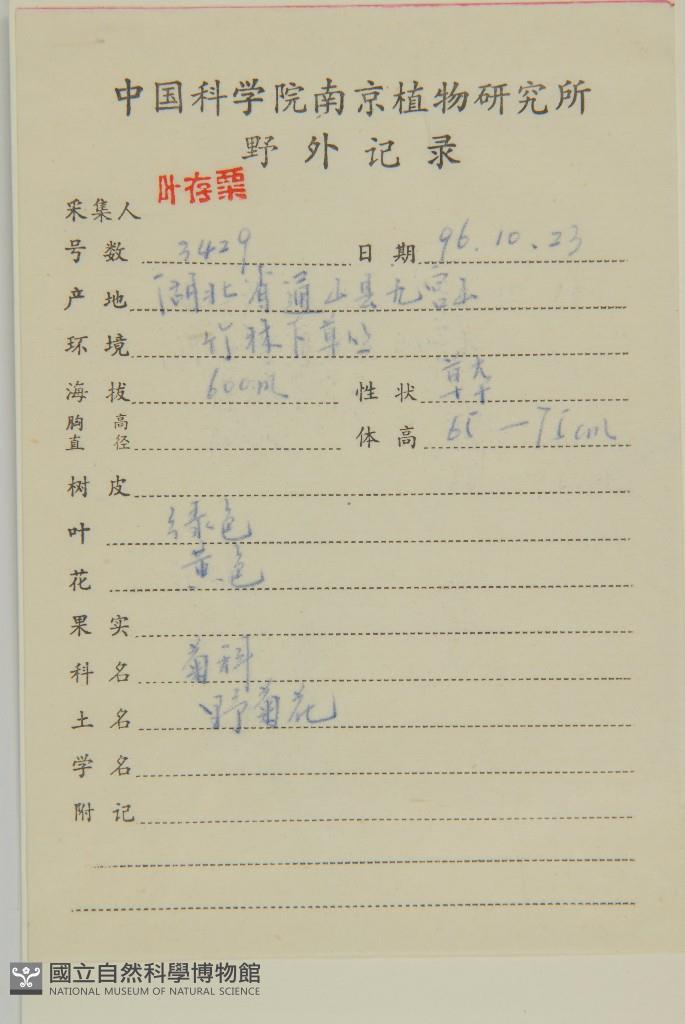 中国科学院南京植物研究所
野外记录
采集人 叶存粟
号数 3429 日期 96.10.23
产地 湖北省通山县九宫山
环境 竹林下草丛
海拔 600m 性状 草
胸高直径 体高 65-75cm
树皮
叶 绿色
花 黄色
果实
科名 菊科
土名 野菊花
学名
附记
國立自然科學博物館
NATIONAL MUSEUM OF NATURAL SCIENCE